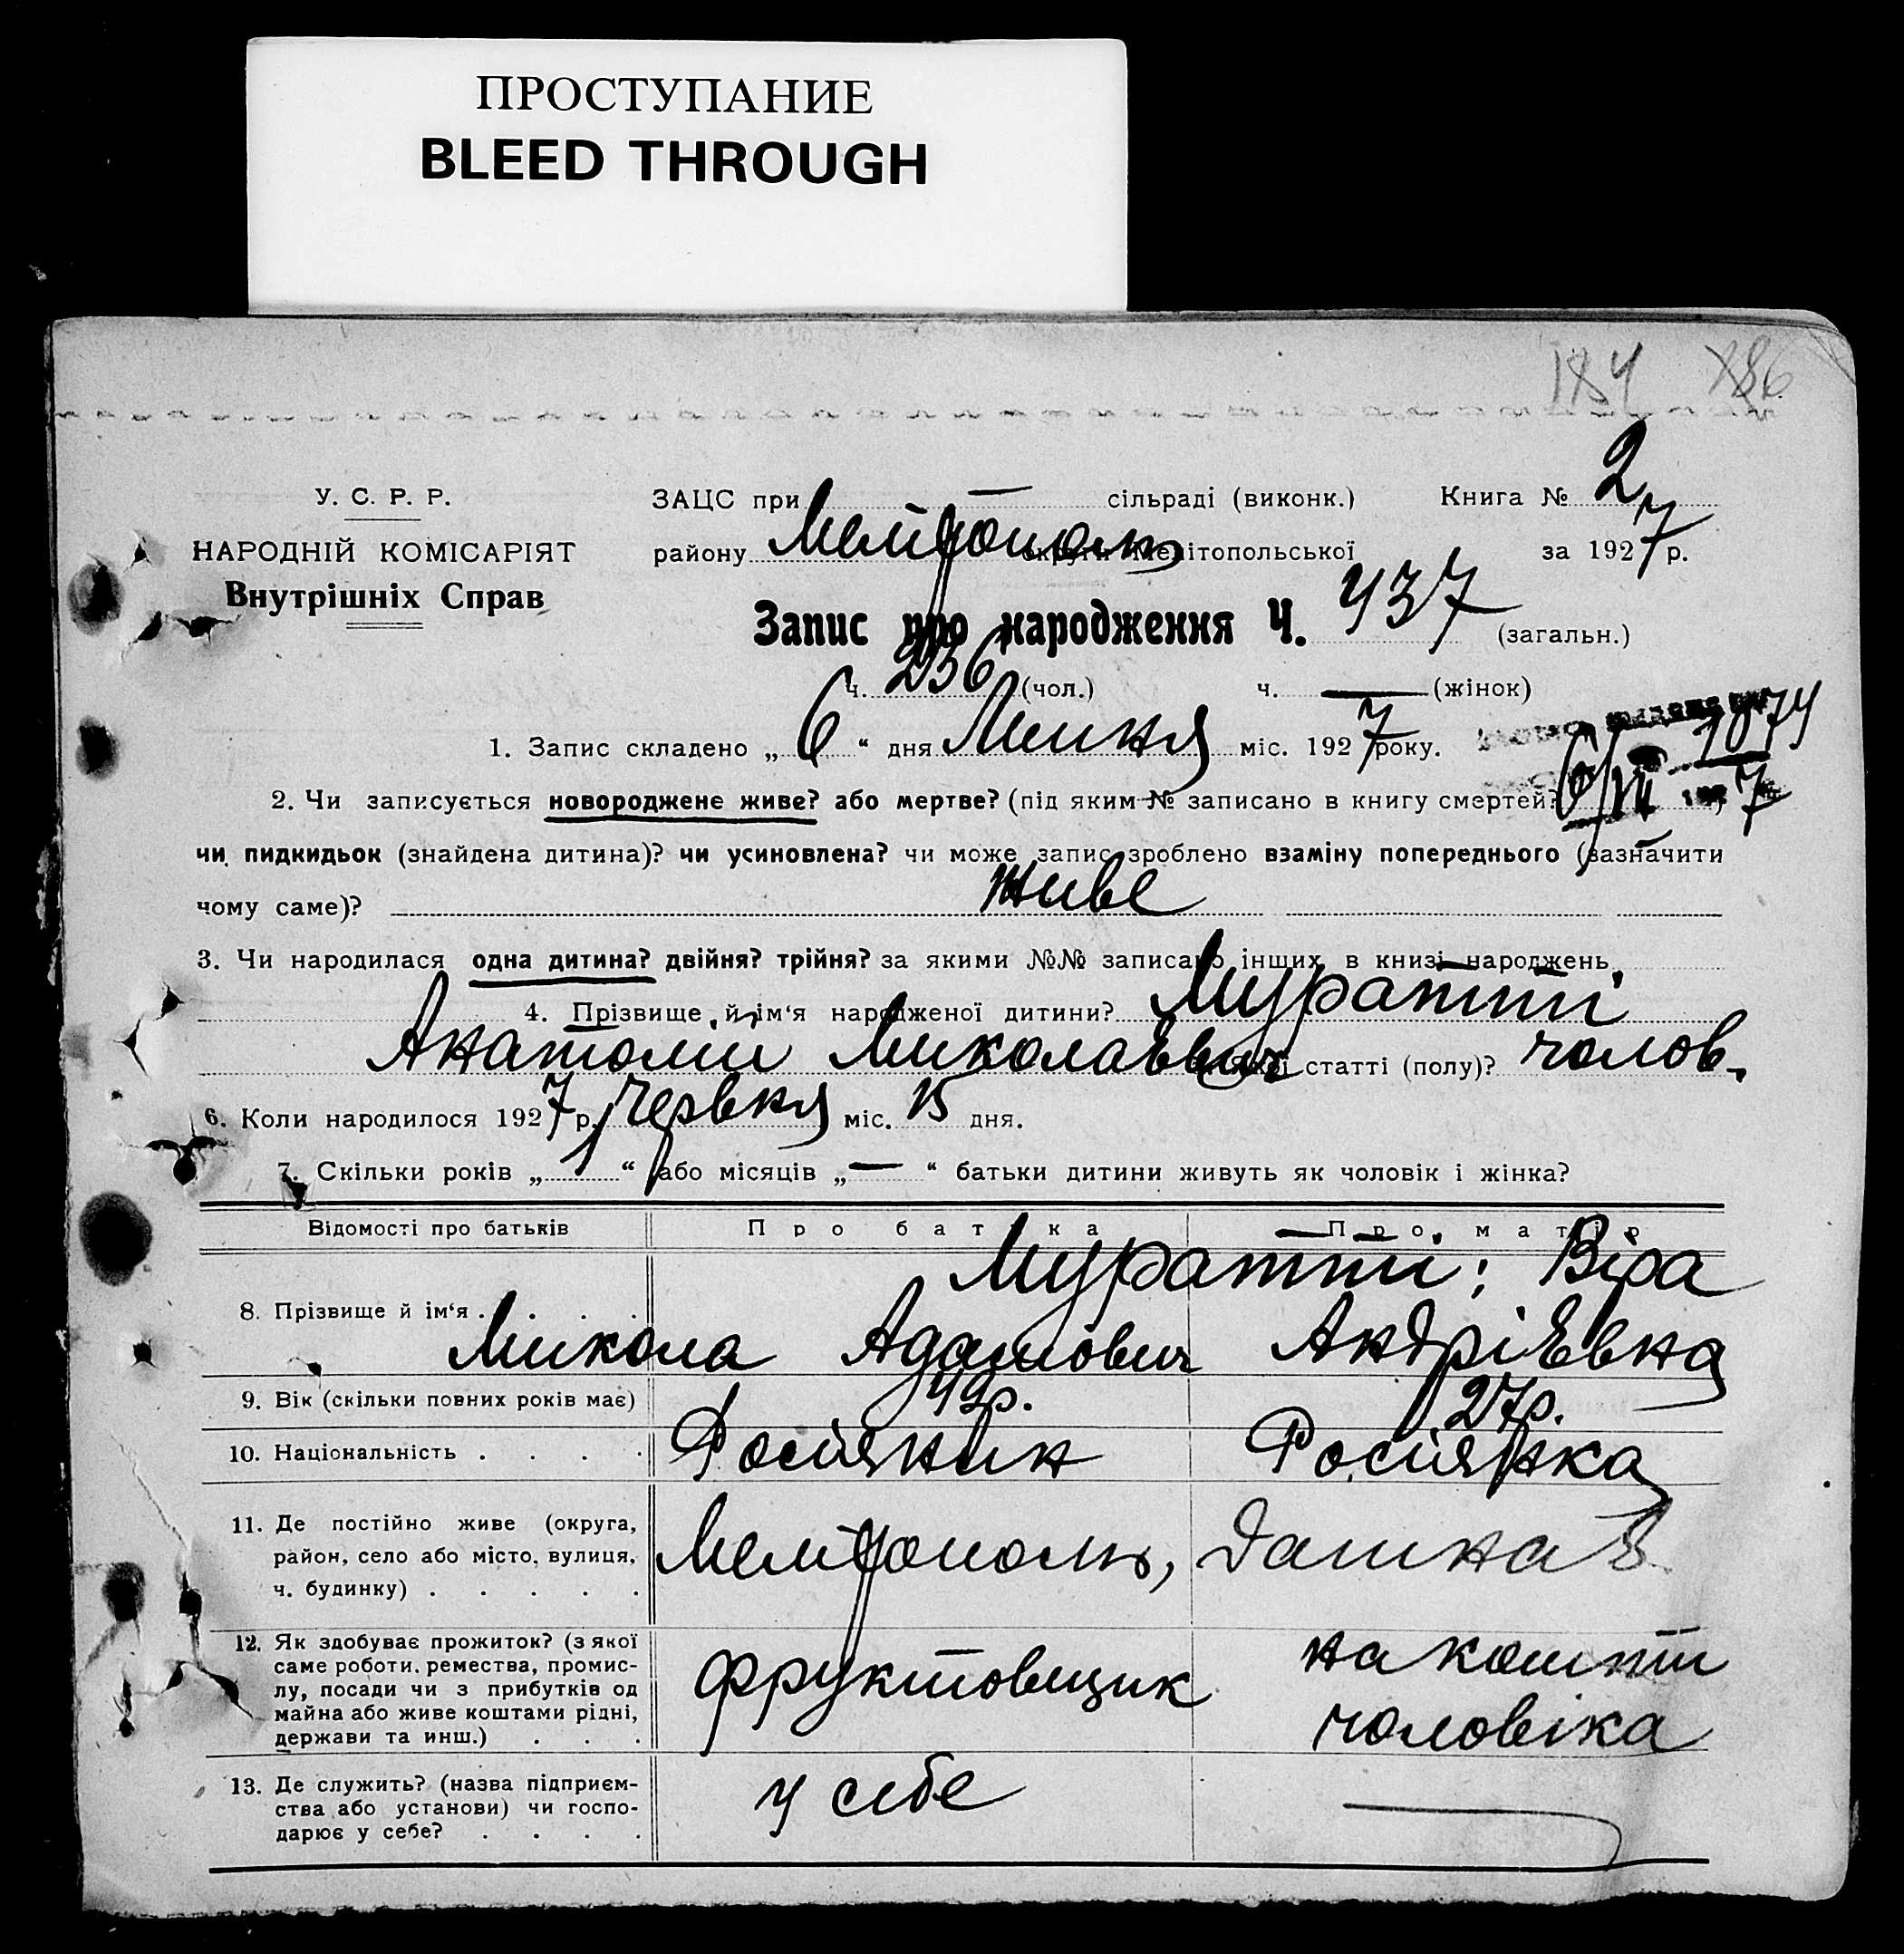 ПРОСТУПАНИЕ
BLEED THROUGH
184 186
У. С. Р. Р.
НАРОДНІЙ КОМІСАРІЯТ
Внутрішніх Справ
ЗАЦС при — сільраді (виконк.) Книга № 2
району Мелітополь округи Мелітопольської за 1927 р.
Запис про народження Ч. 437 (загальн.)
ч. 236 (чол.) ч. — (жінок)
1. Запис складено „ 6 “ дня Липня міс. 1927 року.
1874
6/VII 1927
2. Чи записується новороджене живе? або мертве? (під яким № записано в книгу смертей?
чи пидкидьок (знайдена дитина)? чи усиновлена? чи може запис зроблено взаміну попереднього (зазначити
чому саме)? живе
3. Чи народилася одна дитина? двійня? трійня? за якими №№ записано інших в книзі народжень.
4. Прізвище й ім‘я народженої дитини? Муратті
Анатолий Миколаєвич статті (полу)? чолов.
6. Коли народилося 1927 р. Червня міс. 15 дня.
7. Скільки років „ 1 “ або місяців „ — “ батьки дитини живуть як чоловік і жінка?
Відомості про батьків Про батька Про матір
8. Прізвище й ім‘я . . . . Муратти; Віра
Микола Адамович Андрієвна
9. Вік (скільки повних років має) 42р. 27р.
10. Національність . . . . Росіянин Росіянка
11. Де постійно живе (округа,
район, село або місто, вулиця,
ч. будинку) . . . . . Мелітополь,
12. Як здобуває прожиток? (з якої
саме роботи, ремества, промис-
лу, посади чи з прибутків од
майна або живе коштами рідні,
держави та инш.) . . . фруктовщик на кошти
чоловіка
13. Де служить? (назва підприєм-
ства або установи) чи госпо-
дарює у себе? . . . . у себе —